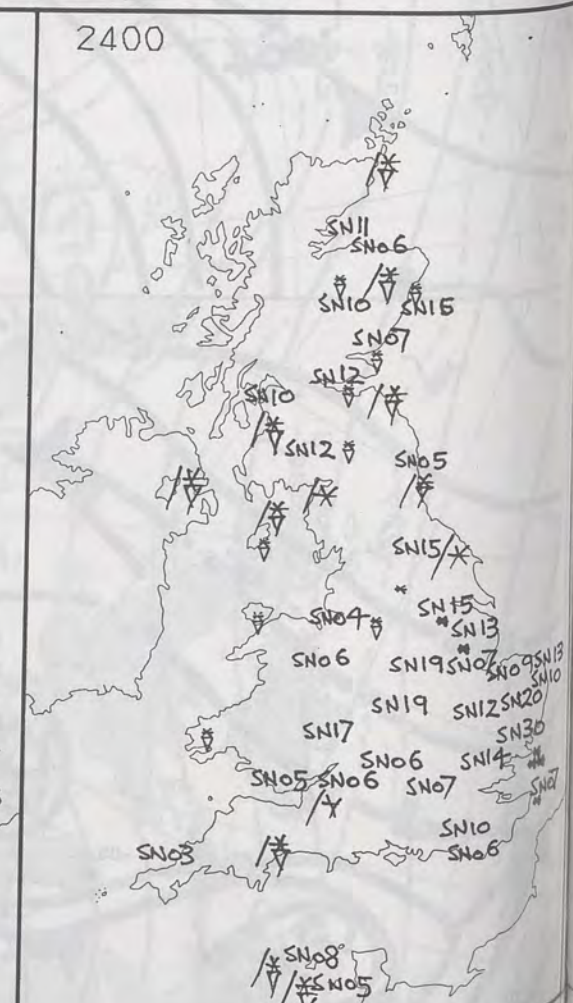 2400
SN11
SN06
SN10 SN15
SN07
SN12
SN10
SN12
SN05
SN15
SN15
SN04 SN13
SN06 SN19 SN07 SN09 SN13
SN10
SN19 SN12 SN20
SN17 SN30
SN06 SN14
SN05 SN06 SN07 SN07
SN10
SN03 SN06
SN08
SN05